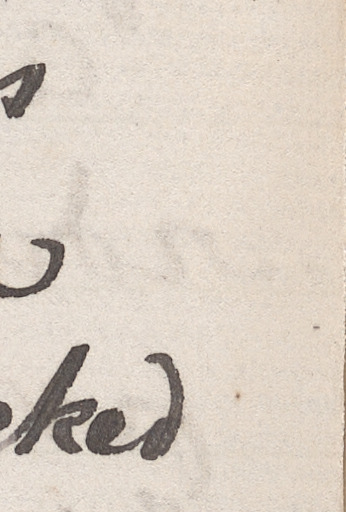 s
eked